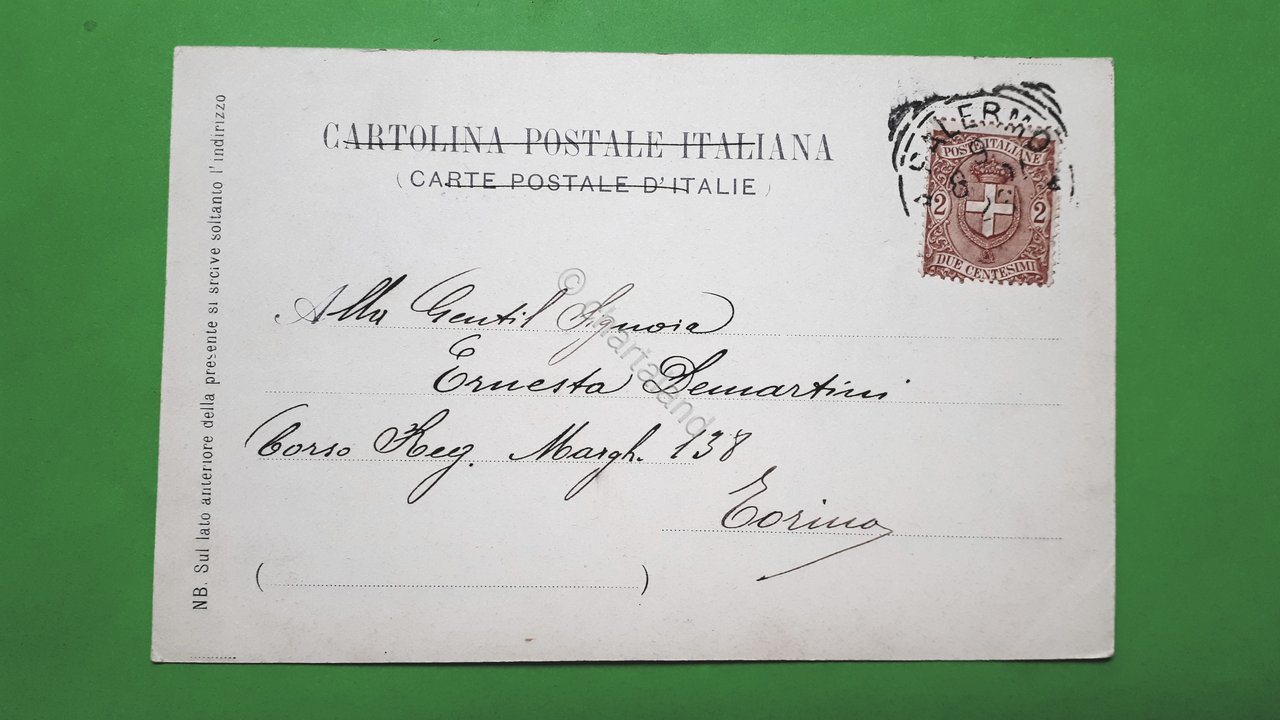 CARTOLINA POSTALE ITALIANA
(CARTE POSTALE D'ITALIE)
POSTE ITALIANE
2 2
DUE CENTESIMI
Alla Gentil Signora
Ernesta Demartini
Corso Reg. Margh. 138
Torino
( )
NB. Sul lato anteriore della presente si srcive soltanto l'indirizzo
© Chartaland